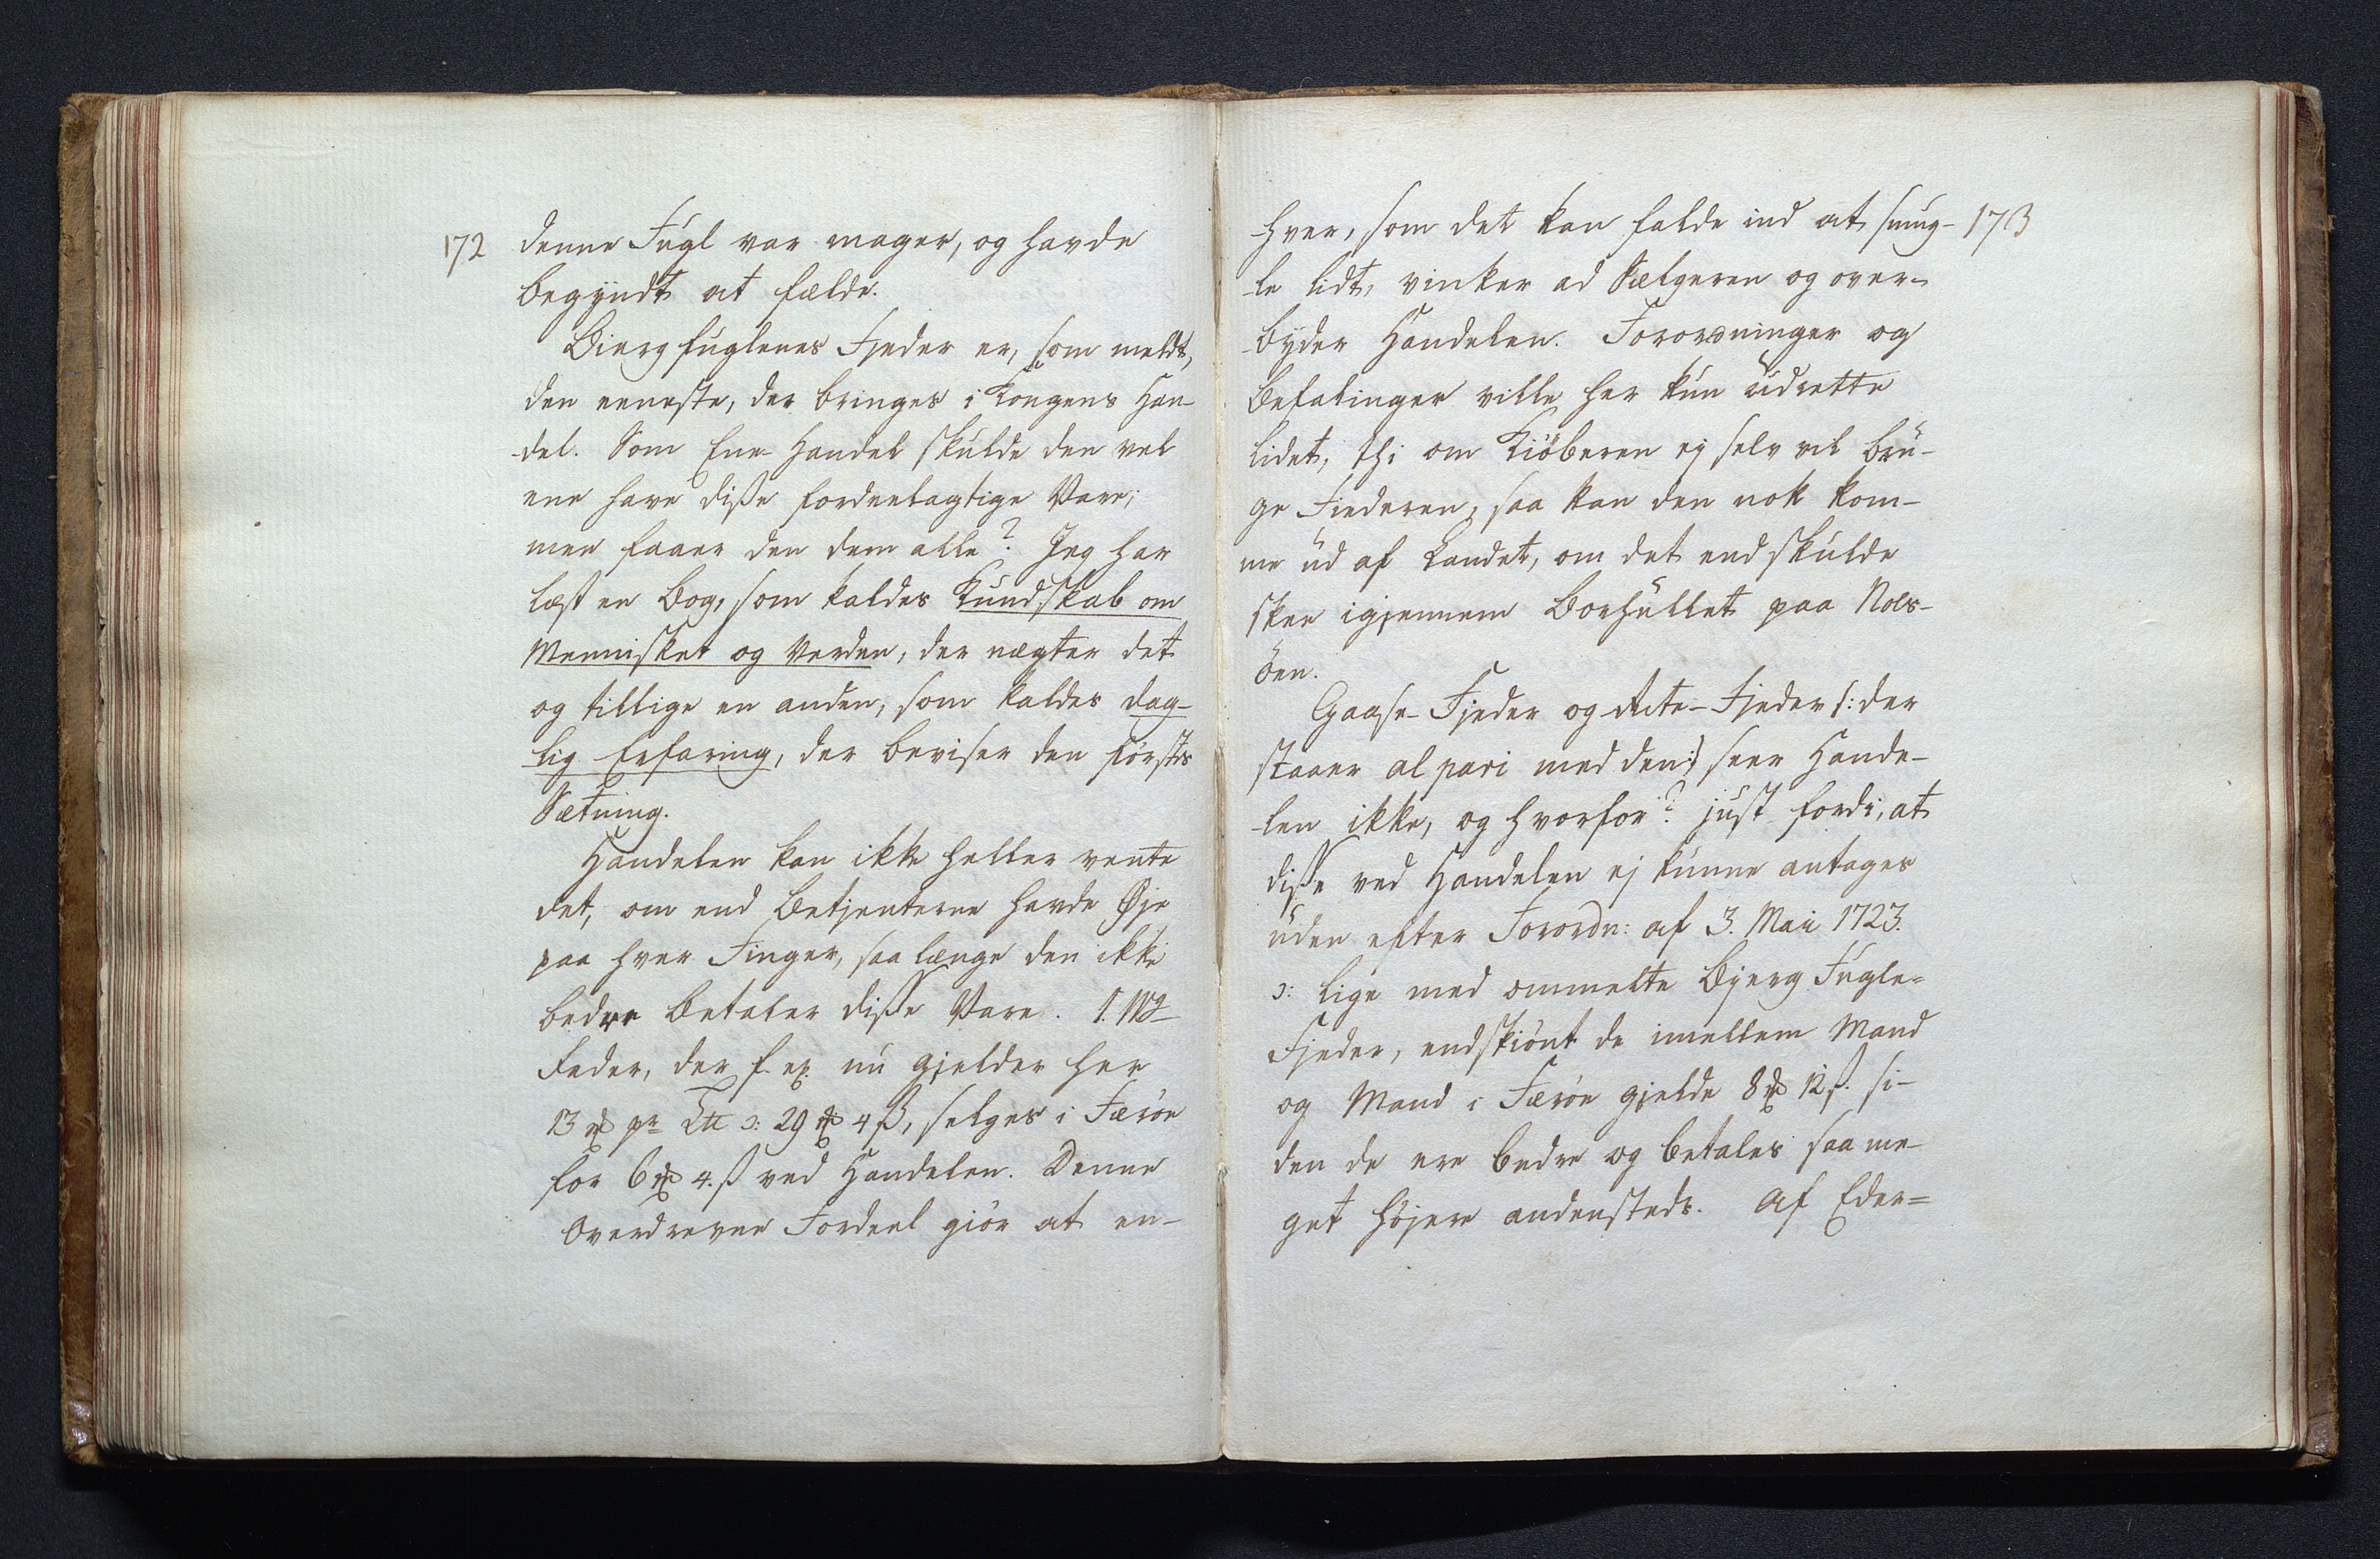 172
denne Fugl var mager, og havde
begyndt at fælde.
Biergfuglenes Fjeder er, som meldt,
den eeneste, der bringes i Kongens Han-
del. Som Ene-Handel skulde den vel
ene have diße fordeelagtige Vare;
men faaer den dem alle? Jeg har
læst en Bog, som kaldes Kundskab om
Mennisket og Verden, der nægter det
og tillige en anden, som kaldes dag-
lig Erfaring, der beviser den første
Sætning.
Handelen kan ikke heller vente
det, om end Betjenterne havde Øje
paa hver Finger, saa længe den ikke
bedre betaler diße Vare. 1.
Feder, der f. ex. nu gjelder her
13 ꝶ pr ɔ: 29 4 ß, selges i Færöe
for 6 4. ß ved Handelen. Denne
overdrevne Fordeel giör at en-
173
hver, som det kan falde ind at smug-
le lidt, vinker ad Sælgeren og over-
byder Handelen. Forordninger og
Befalinger ville her kun udrette
lidet, thi om Kiöberen ej selv vil bru-
ge Fiederen, saa kan den nok kom-
me ud af Landet, om det end skulde
skee igjennem Borhullet paa Nols-
öen.
Gaase-Fjeder og Rite-Fjeder /: der
staaer al pari med den :/ seer Hande-
len ikke, og hvorfor? just fordi, at
diße ved Handelen ej kunne antages
uden efter Forordn: af 3. Mai 1723.
ɔ: lige med ommelte Bjerg Fugle-
Fjeder, endskiönt de imellem Mand
og Mand i Færöe gjelde 8 12 ß. si-
den de ere bedre og betales saa me-
get højere andensteds. Af Eder=